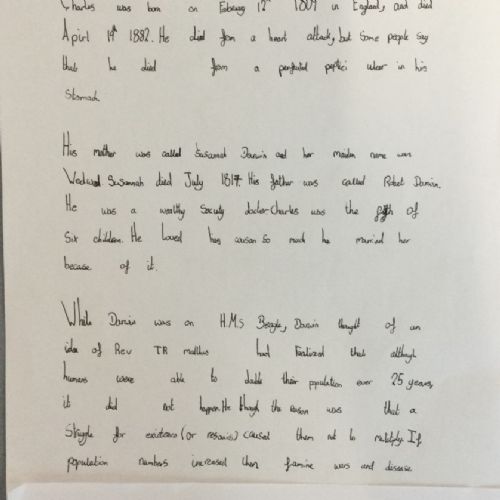 Charles was born on Febuary 12th 1809 in England, and died
Apirl 19th 1882. He died from a heart attack, but some people say
that he died from a perfrated peptici ulcer in his
Stomach.
His mother was called Susannah Darwin and her maiden name was
Wedwood Susannah died July 1817. His father was called Robet Darwin.
He was a wealthy Society doctor Charles was the fifth of
Six children. He Loved his cousan so much he married her
because of it.
While Darwin was on H.M.S Beagle, Darwin thought of an
idea of Rev TR malthus had Realized that although
humans were able to double their population ever 25 years,
it did not happen. He though the reason was that a
Struggle for existence (or resorces) caused them not to multiply. If
population numbers increased then famine wars and disease